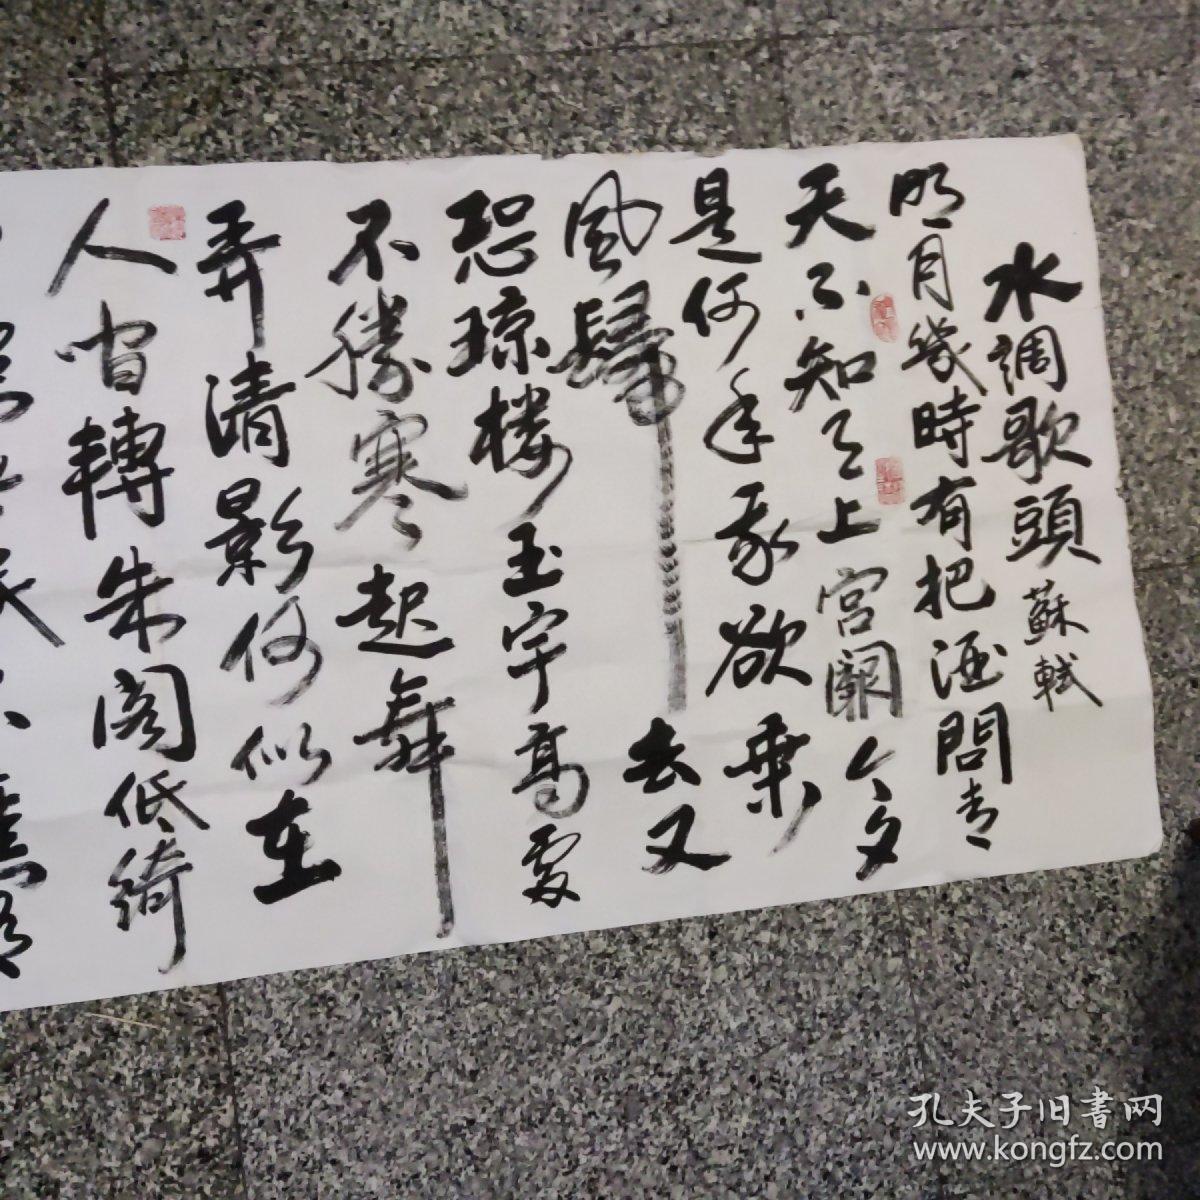 水調歌頭 蘇軾
明月幾時有把酒問青
天不知天上宮闕今夕
是何年我欲乗
風歸去又
恐琼楼玉宇髙處
不勝寒起舞
弄清影何似在
人間轉朱阁低綺
孔夫子旧書网
www.kongfz.com